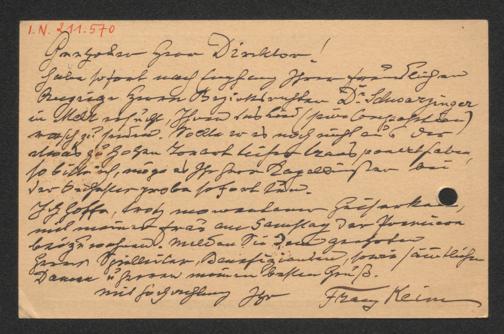 I.N. 211.570
Geehrter Herr Direktor!
habe sofort nach Empfang Ihrer freundlichen
Herrn Bezirksrichter Dr. Schwarzinger
in Melk ersucht, Ihnen das Lied
rasch zu senden. Sollte er es noch nicht auf der
zu haben
so bitte ich, möge es Ihr Herr Kapellmeister bei
der sofort tun.
Ich hoffe, trotz
mit meiner Frau am Samstag der Premiere
beizuwohnen. Melden Sie dem
Herrn Spielleiter, Benefizianten, sowie sämtlichen
Damen u Herren meinen besten Gruß.
mit Hochachtung Ihr Franz Keim